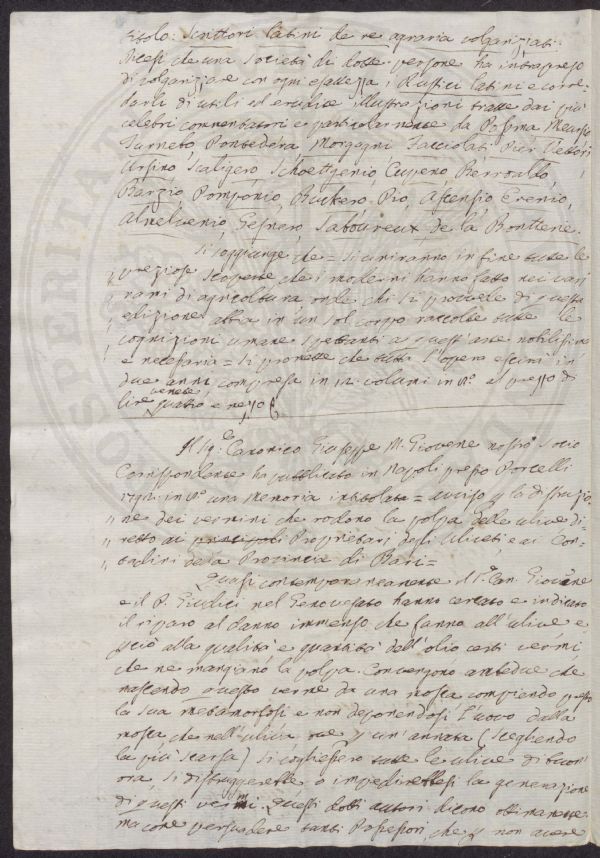 titolo: Scrittori latini de re agraria volgarizzati.
Dicesi che una Società di dotte persone ha intrapreso
di volgarizzare con ogni esattezza i Rustici latini e corre-
darli di utili ed erudite illustrazioni tratte dai più
celebri commentatori e particolarmente da Possma Meursio
Turnebo Pontedera Morgagni Facciolati Pier Vettori
Orsino Scaligero Schoettgenio, Cupeno Beroaldo
Barzio, Pomponio, Buckero. Pio, Ascensio Erenio,
Almelvenio Gesnero Saboureux de la Bontterie.
Si soggiunge che = si uniranno in fine tutte le
preziose scoperte che i moderni hanno fatto nei vari
rami di agricoltura onde chi si provvede di questa
edizione abbia in un sol corpo raccolte tutte le
cognizioni umane spettanti a quest'arte nobilissima
e necessaria = Si promette che tutta l'opera escirà in
due anni compresa in 12. volumi in 8º. al prezzo di
lire venete quattro e mezzo
Il Sig.e Canonico Giuseppe M. Giovene nostro Socio
Corrispondente ha pubblicato in Napoli presso Porcelli
1792. in 8º. una memoria intitolata = avviso p la distruzio-
ne dei vermini che rodono la polpa delle ulive di-
retto ai principali Proprietari degli Uliveti e ai Con-
tadini della Provincia di Bari =
Quasi contemporaneamente il S.r Can. Giovene
e il P. Giudici nel Genovesato hanno cercato e indicato
il riparo al danno immenso che fanno all'ulive e
perciò alla qualità e quantità dell'olio certi vermi
che ne mangiano la polpa. Convengono ambedue che
nascendo questo verme da una mosca compiendo presto
la sua metamorfosi e non deponendosi l'uovo dalla
mosca che nell'uliva ove p un'annata (scegliendo
la più scarsa) si cogliessero tutte le ulive di buon'
ora si distruggerebbe o impedirebbesi la generazione
di questi vermi. Questi dotti autori dicono ottimamente
ma come persuadere tanti Possessori, che p non avere